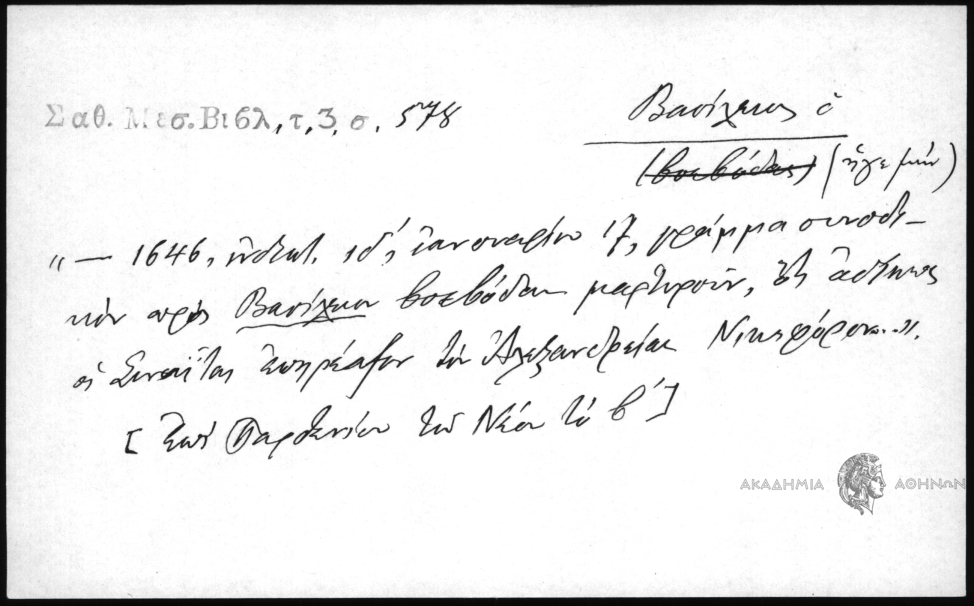 Σαθ. Μεσ. Βιβλ, τ, 3, σ. 578
Βασίλειος ὁ
(βοεβόδας) (ἡγεμών)
"— 1646, ἰνδικτ. ιδ', ἰανουαρίου 17, γράμμα συνοδι-
κὸν πρὸς Βασίλειον βοεβόδαν μαρτυροῦν, ὅτι ἀδίκως
οἱ Σιναῖται ἐπηρέαζον τὸν Ἀλεξανδρείας Νικηφόρον...".
[Ἐπὶ Παρθενίου τοῦ Νέου τὸ β']
ΑΚΑΔΗΜΙΑ ΑΘΗΝΩΝ